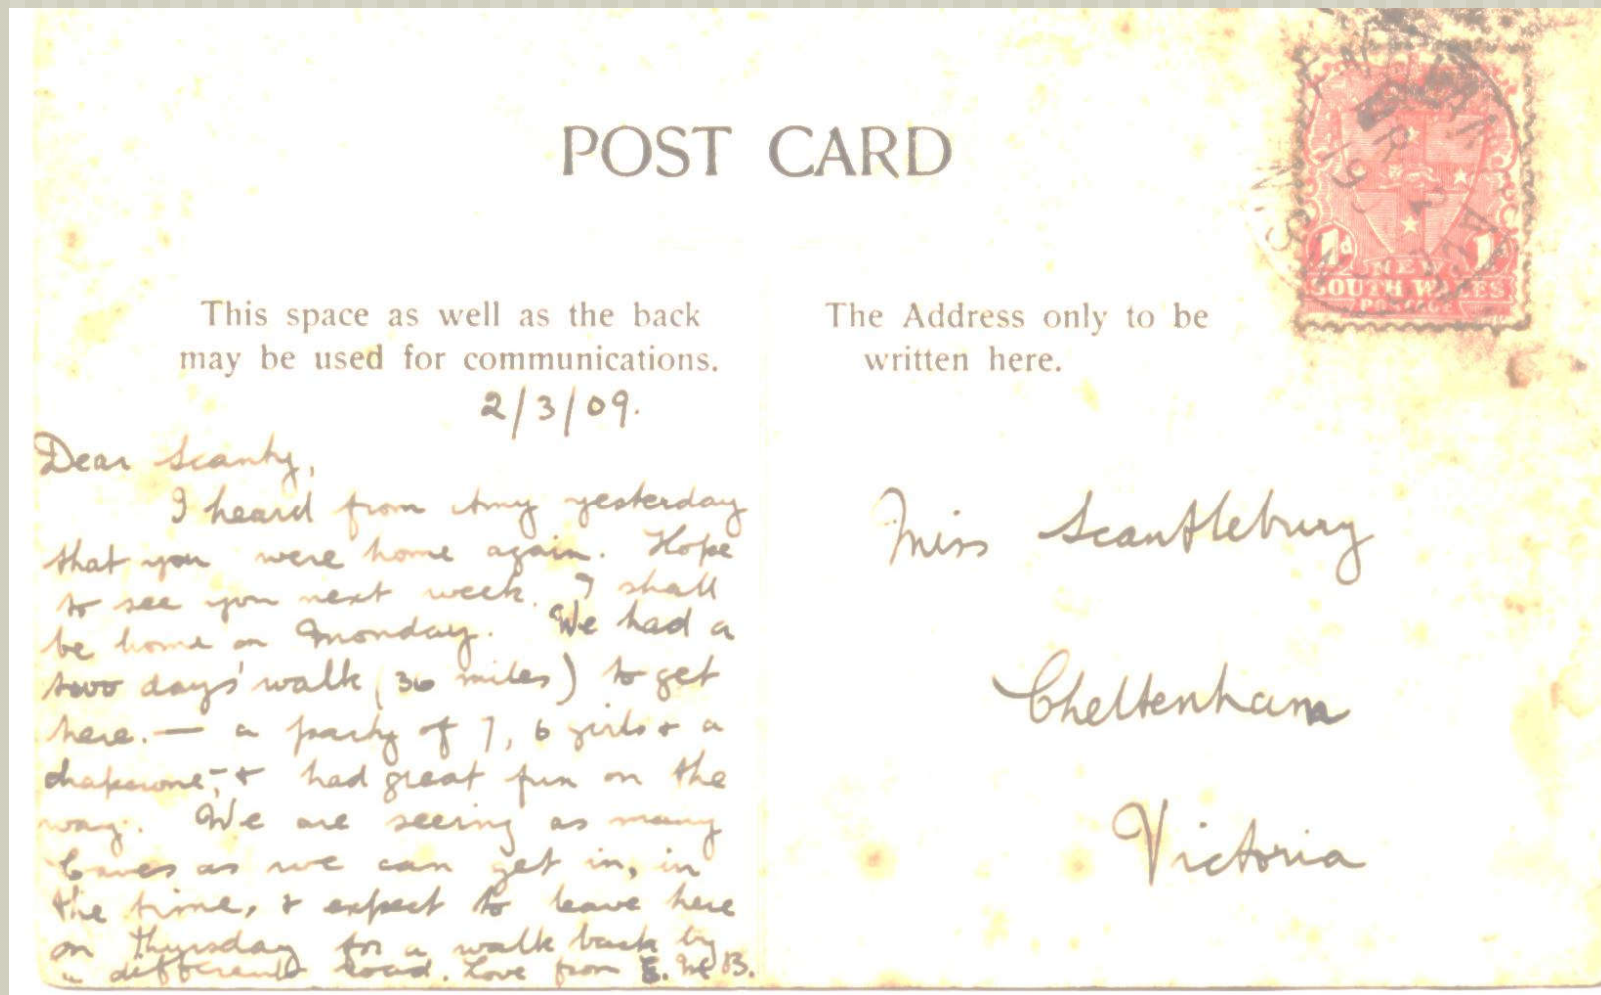 POST CARD
This space as well as the back
may be used for communications.
The Address only to be
written here.
1d
1
NEW
SOUTH WALES
POSTAGE
2/3/09.
Dear Scanty,
I heard from Amy yesterday
that you were home again. Hope
to see you next week. I shall
be home on Monday. We had a
two days' walk (36 miles) to get
here. — a party of 7, 6 girls & a
chaperone, — & had great fun on the
way. We are seeing as many
Caves as we can get in, in
the time, & expect to leave here
on Thursday for a walk back by
a different road. Love from E. McB.
Miss Scantlebury
Cheltenham
Victoria